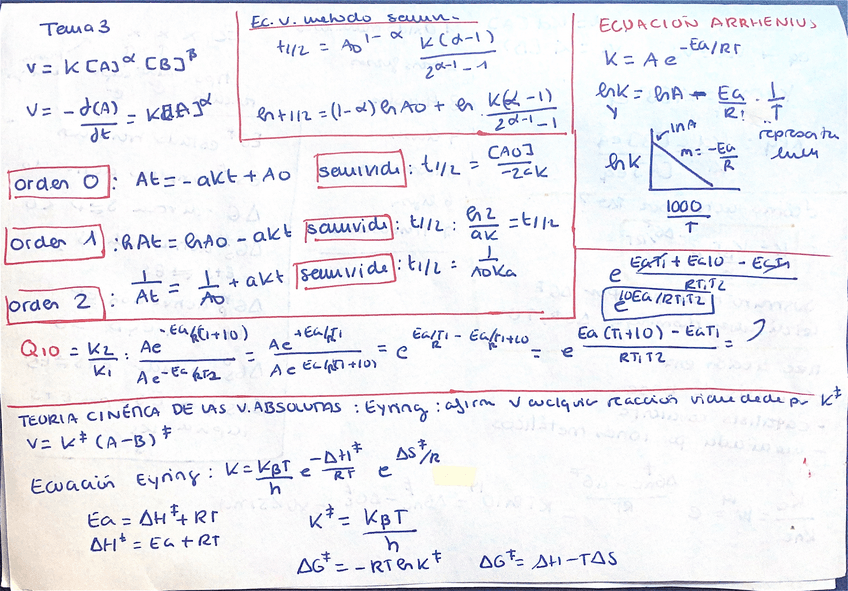 Tema 3
V = K [A]^α [B]^β
V = -d(A)/dt = K[A]^α
Ec. v. metodo semiv.
t1/2 = A0^1-α K(α-1)/2^α-1 -1
ln t1/2 = (1-α) ln A0 + ln K(α-1)/2^α-1 -1
ECUACIÓN ARRHENIUS
K = A e^-Ea/RT
lnK = lnA - Ea/R · 1/T
y
lnA
m = -Ea/R
lnK
1000/T
orden 0 : At = -akt + A0 semivida : t1/2 = [A0]/-2ak
orden 1 : lnAt = lnA0 - akt semivida : t1/2 : ln2/ak = t1/2
orden 2 : 1/At = 1/A0 + akt semivida : t1/2 = 1/A0Ka
e^EaT1 + Ea10 - EaT1/RT1T2
e^10Ea/RT1T2
Q10 = K2/K1 : Ae^-Ea/R(T1+10)/Ae^-Ea/RT2 = Ae^+Ea/RT1/Ae^Ea/R(T1+10) = e^Ea/RT1 - Ea/RT1+10 = e^Ea(T1+10) - EaT1/RT1T2 =
TEORIA CINÉTICA DE LAS V. ABSOLUTAS : Eyring : afirma V cualquier reacción viene dada por K‡
V = K‡ (A-B)‡
Ecuación Eyring : K = KBT/h e^-ΔH‡/RT e^ΔS‡/R
Ea = ΔH‡ + RT K‡ = KBT/h
ΔH‡ = Ea + RT
ΔG‡ = -RT ln K‡ ΔG‡ = ΔH - TΔS